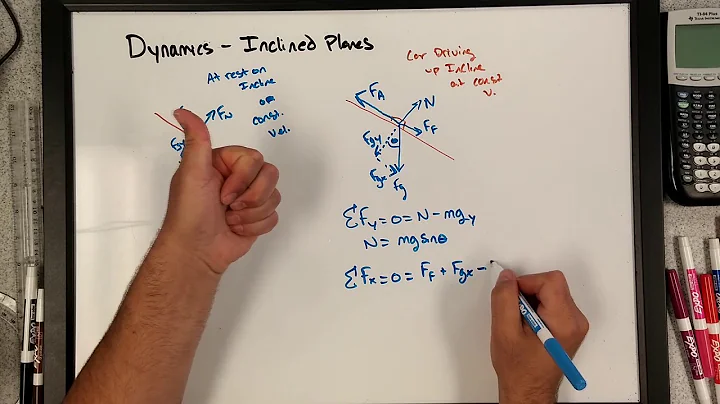 Dynamics - Inclined Planes
At rest on
Incline
or
const.
vel.
FN
Fgy
Car Driving
up Incline
at const
v.
FA
N
FF
Fgy
θ
Fgx
Fg
ΣFy=0=N-mgy
N= mgsinθ
ΣFx=0=FF+Fgx-
TI-84 Plus
Texas Instruments
EXPO
EXPO
EXPO